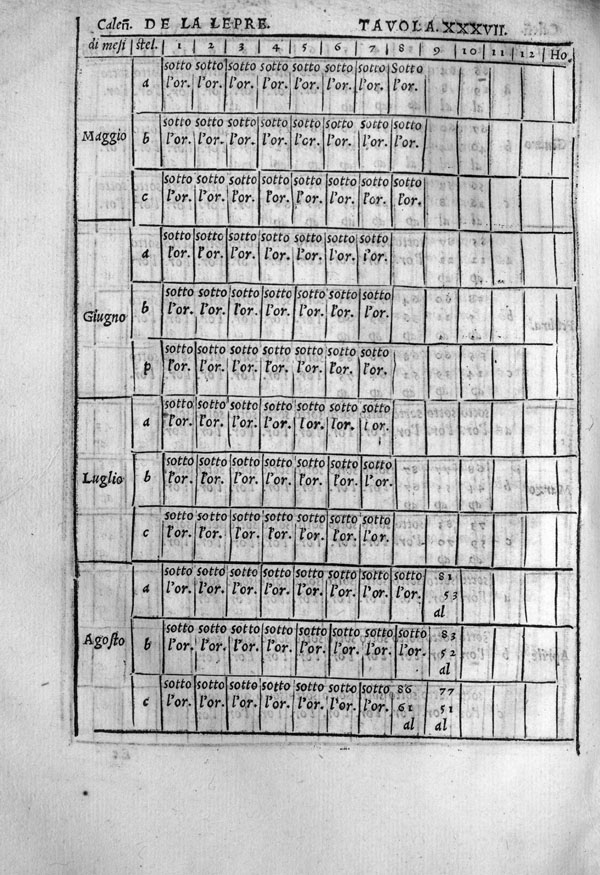 Caleñ. DE LA LEPRE. TAVOLA.XXXVII.
di mesi stel. 1 2 3 4 5 6 7 8 9 10 11 12 Ho.
sotto sotto sotto sotto sotto sotto sotto Sotto
a l'or. l'or. l'or. l'or. l'or. l'or. l'or. l'or.
sotto sotto sotto sotto sotto sotto sotto sotto
Maggio b l'or. l'or. l'or. l'or. l'or. l'or. l'or. l'or.
sotto sotto sotto sotto sotto sotto sotto sotto
c l'or. l'or. l'or. l'or. l'or. l'or. l'or. l'or.
sotto sotto sotto sotto sotto sotto sotto
a l'or. l'or. l'or. l'or. l'or. l'or. l'or.
sotto sotto sotto sotto sotto sotto sotto
Giugno b l'or. l'or. l'or. l'or. l'or. l'or. l'or.
sotto sotto sotto sotto sotto sotto sotto
p l'or. l'or. l'or. l'or. l'or. l'or. l'or.
sotto sotto sotto sotto sotto sotto sotto
a l'or. l'or. l'or. l'or. l'or. l'or. l'or.
sotto sotto sotto sotto sotto sotto sotto
Luglio b l'or. l'or. l'or. l'or. l'or. l'or. l'or.
sotto sotto sotto sotto sotto sotto sotto
c l'or. l'or. l'or. l'or. l'or. l'or. l'or.
sotto sotto sotto sotto sotto sotto sotto sotto 81
a l'or. l'or. l'or. l'or. l'or. l'or. l'or. l'or. 53
al
sotto sotto sotto sotto sotto sotto sotto sotto 83
Agosto b l'or. l'or. l'or. l'or. l'or. l'or. l'or. l'or. 52
al
sotto sotto sotto sotto sotto sotto sotto 86 77
c l'or. l'or. l'or. l'or. l'or. l'or. l'or. 61 51
al al